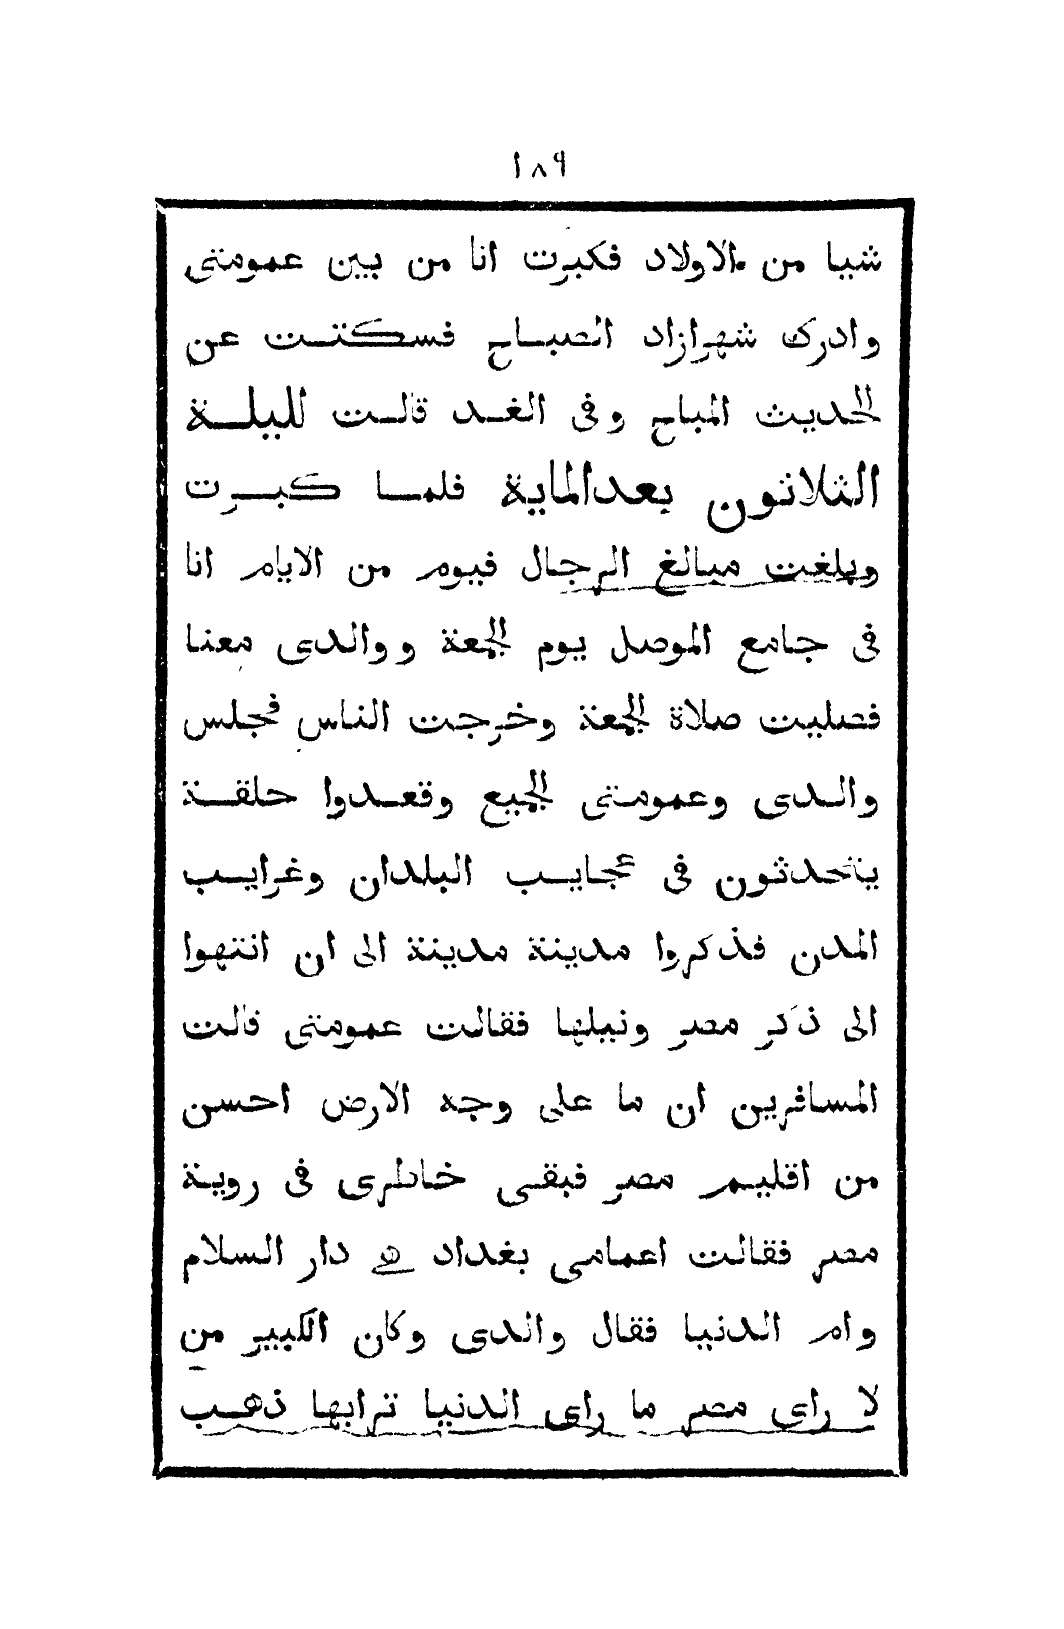 ١٨٩
شيا من الاولاد فكبرت انا من بين عمومتى
وادرك شهرازاد الصباح فسكتت عن
الحديث المباح وفى الغد قالت لليلة
الثلاثون بعدالماية فلما كبرت
وبلغت مبالغ الرجال فيوم من الايام انا
فى جامع الموصل يوم الجمعة ووالدى معنا
فصليت صلاة الجمعة وخرجت الناس فجلس
والدى وعمومتى الجميع وقعدوا حلقة
يتحدثون فى عجايب البلدان وغرايب
المدن فذكروا مدينة مدينة الى ان انتهوا
الى ذكر مصر ونيلها فقالت عمومتى قالت
المسافرين ان ما على وجه الارض احسن
من اقليم مصر فبقى خاطرى فى روية
مصر فقالت اعمامى بغداد هى دار السلام
وام الدنيا فقال والدى وكان الكبير من
لا راى مصر ما راى الدنيا ترابها ذهب